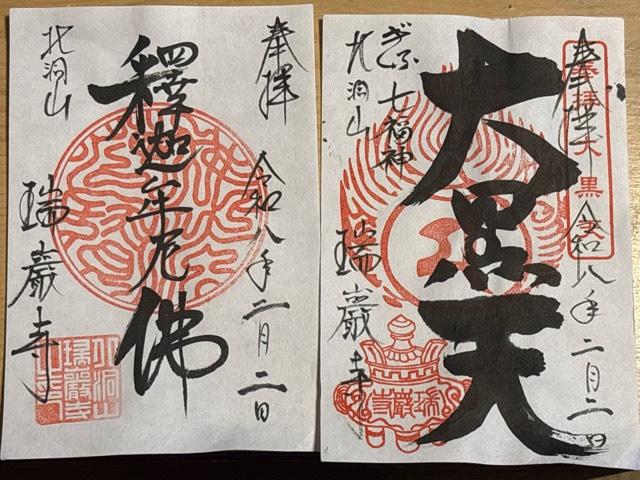 奉拝
令和八年二月二日
釋迦牟尼佛
北洞山
瑞巖寺
北洞山
瑞巖寺
奉拝
令和八年二月二日
大黒天
ぎふ七福神
北洞山
瑞巖寺
瑞巖寺